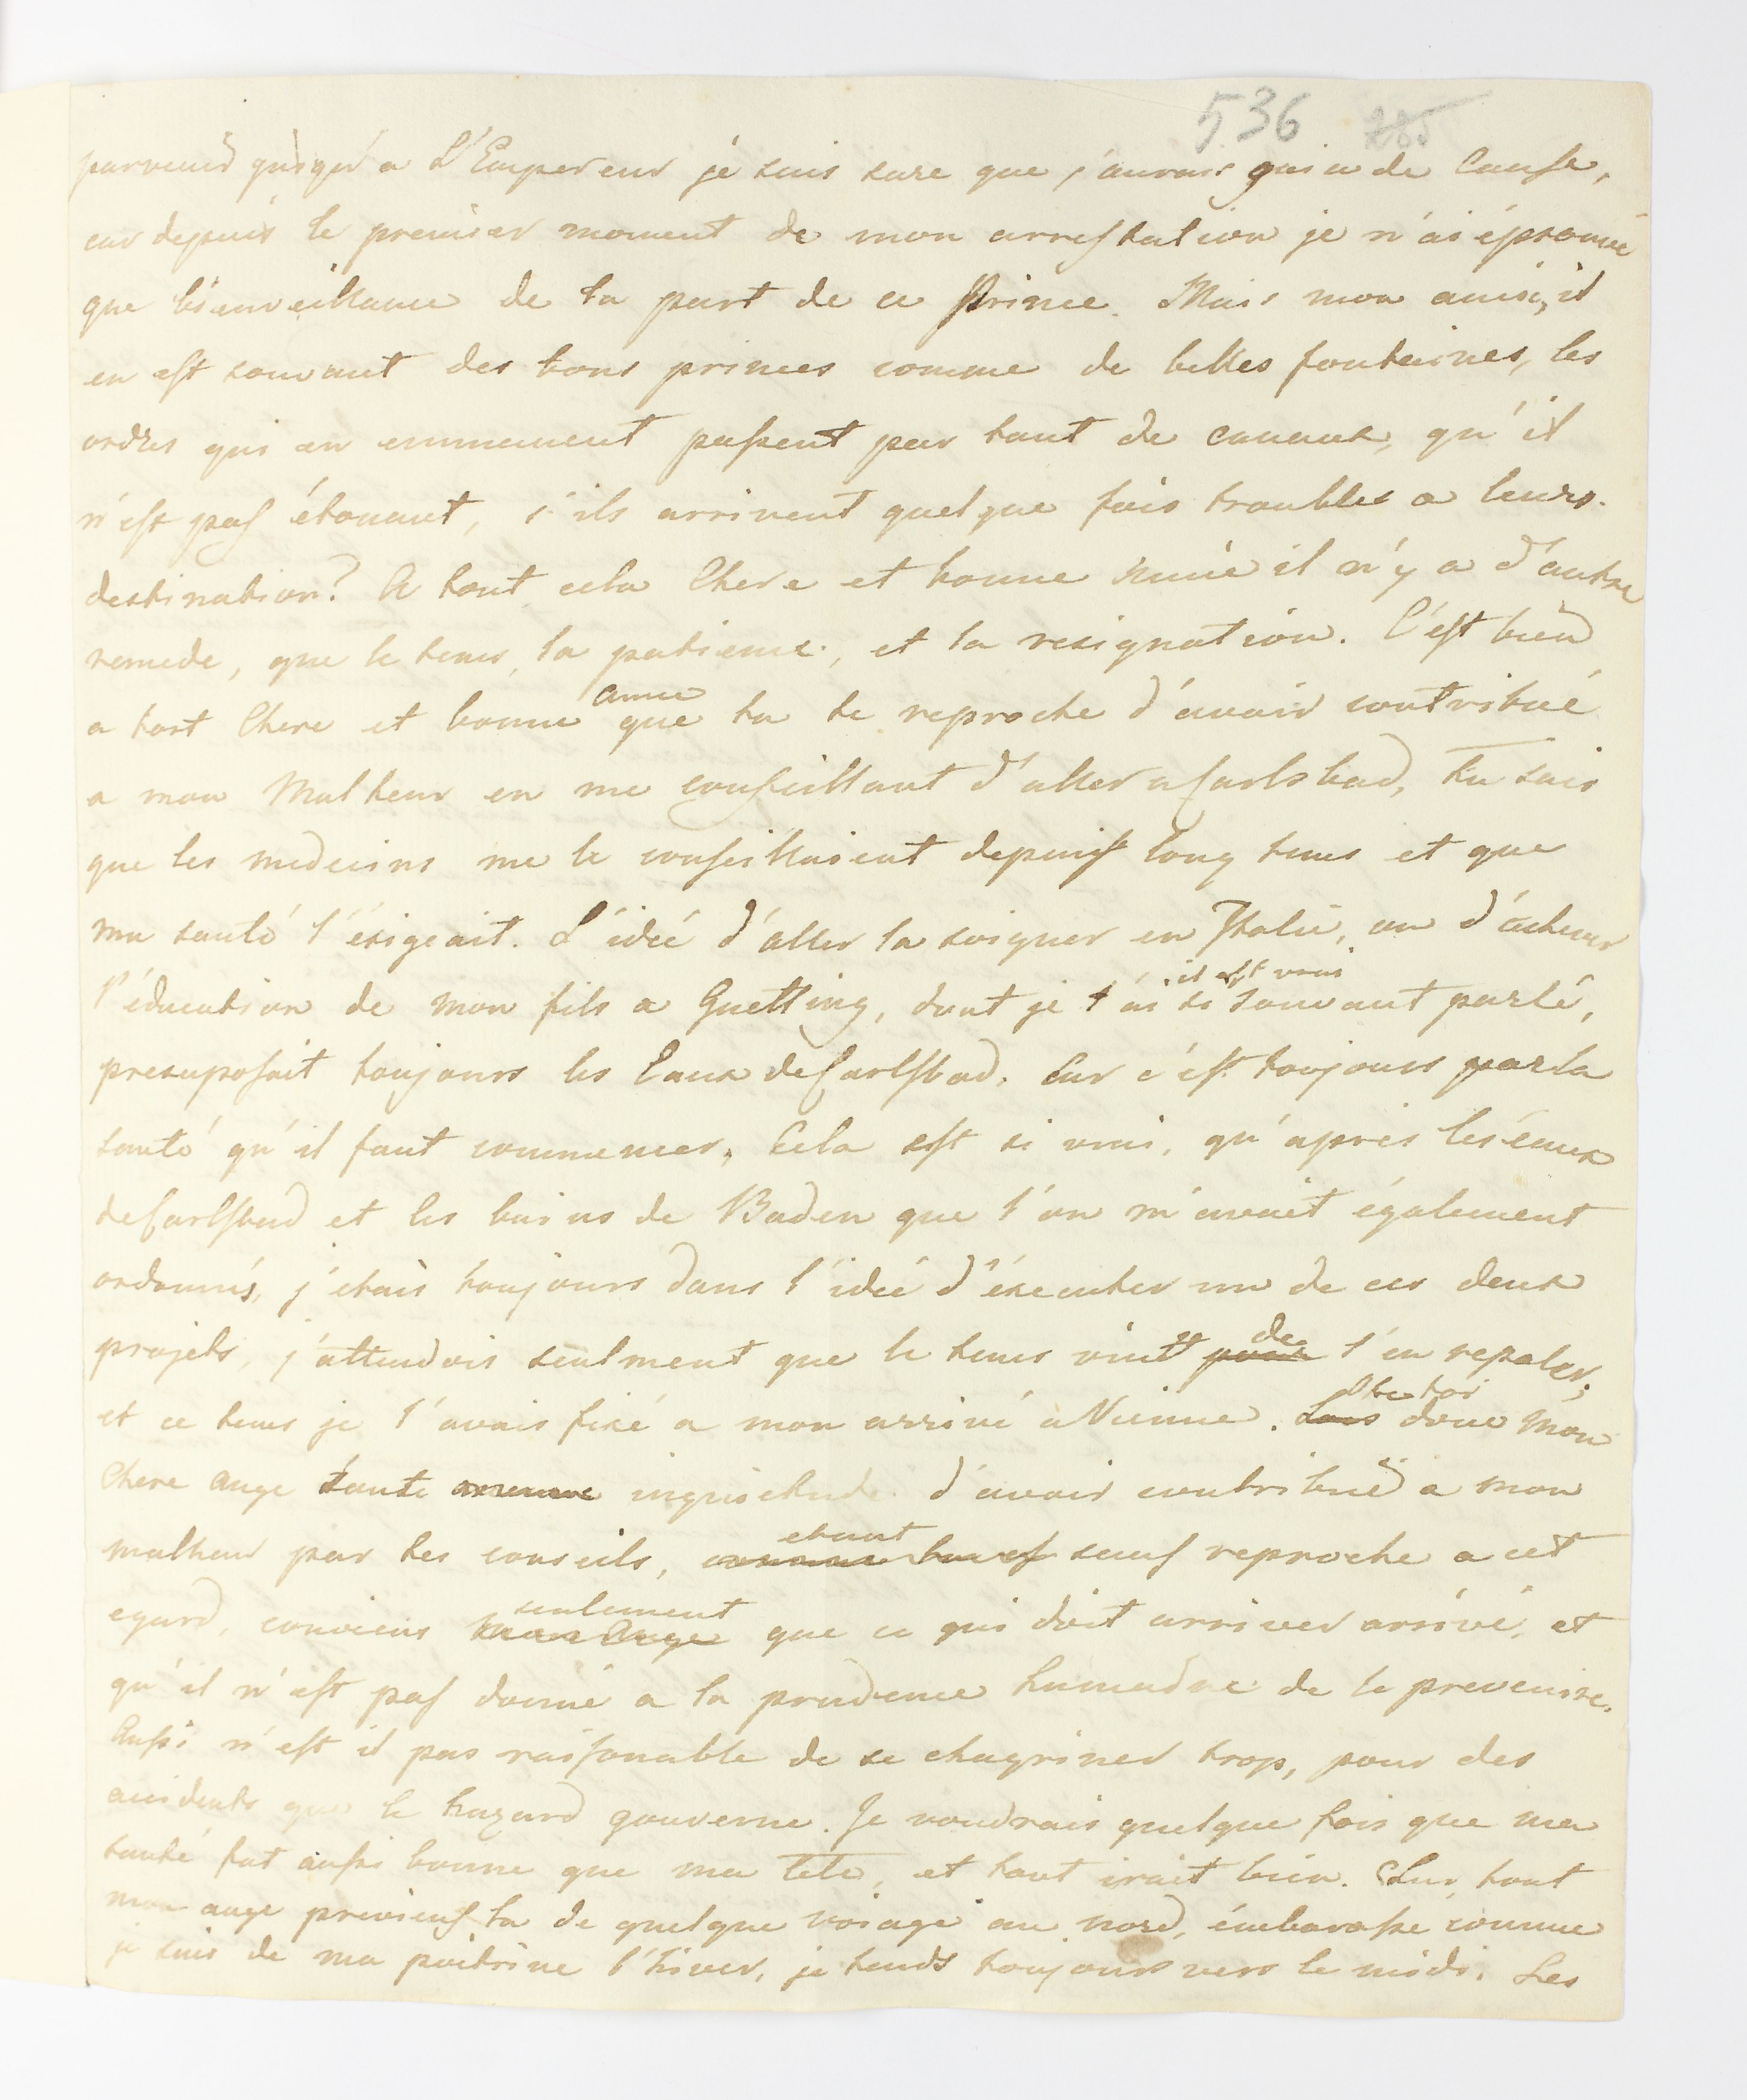 536 285
parvenir jusqu'a L'Empereur je suis sure que j'aurais gain de Cause,
car depuis le premier moment de mon arrestation je n'ai éprouvé
que bienveillance de la part de ce Prince. Mais mon amie, il
en est souvant des bons princes comme de belles fontaines, les
ordres qui en emmanent passent par tant de canaux, qu'il
n'est pas étonant, s'ils arrivent quelque fois troubles a leurs
destination? A tout cela Chere et bonne Amie il n'y a d'autre
remede, que le tems, la patience, et la resignation. C'est bien
a tort Chere et bonne amie que tu te reproche d'avoir contribué
a mon Malheur en me conseillant d'aller a Carlsbad, tu sais
que les medecins me le conseilloient depuis long tems et que
ma santé l'éxigeait. L'idée d'aller la soigner en Italie, ou d'achever
l'éducation de mon fils a Guetting, dont je t'ai il est vrai si souvant parlé,
presuposait toujours les Eaux de Carlsbad. Car c'est toujours par la
santé qu'il faut commencer, Cela est si vrai, qu'aprés les éaux
de Carlsbad et les bains de Baden que l'on m'avait également
ordonnés, j'etais toujours dans l'idée d'éxecuter un de ces deux
projets, j'attendois seulment que le tems vint pour de t'en reparler,
et ce tems je l'avais fixé a mon arrivé a Vienne. Ote toi donc Mon
Chere ange toute inquietude d'avoir contribué a mon
malheur par tes conseils, etant sans reproche a cet
egard, conviens mon Ange seulement que ce qui doit arriver arrive, et
qu'il n'est pas donné a la prudence humaine de le prevenire.
Aussi n'est il pas raisonable de se chagriner trop, pour des
accidents que le hazard gouverne. Je voudrais quelque fois que ma
santé fut aussi bonne que ma Tete, et tout irait bien. Sur tout
mon ange previens la de quelque voiage au nord, émbarasse comme
je suis de ma poitrine l'hiver, je tends toujours vers le midi. Les